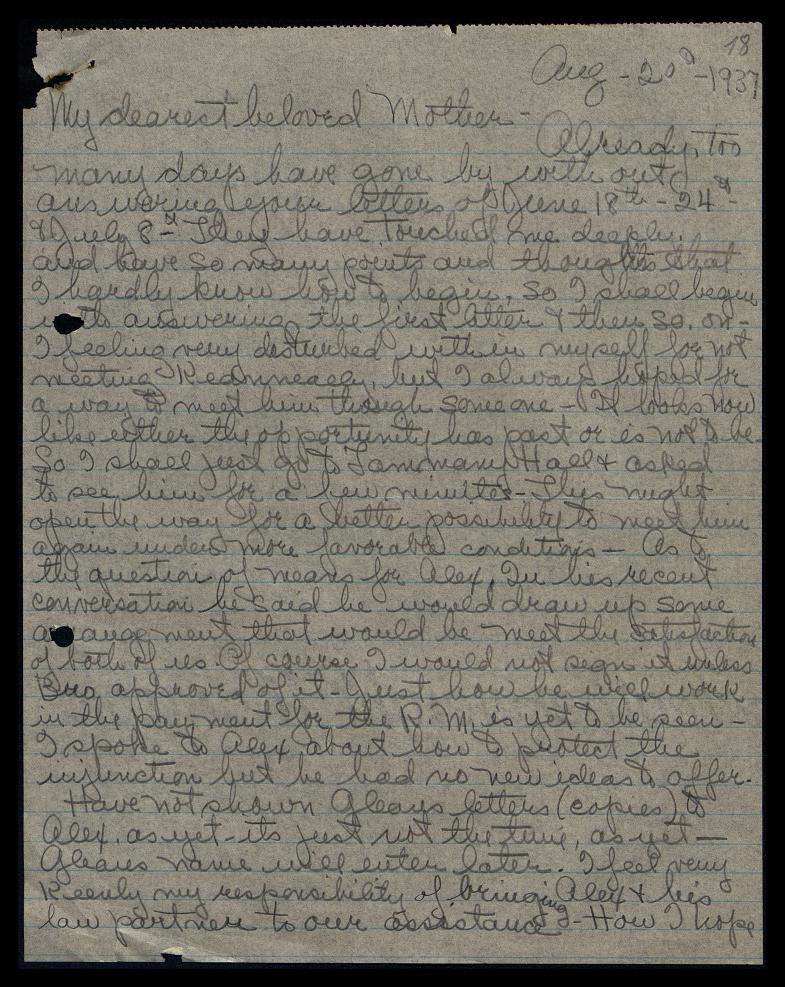 18
Aug - 20th - 1937
My dearest beloved Mother -
Already, too
many days have gone by with out
answering your letters of June 18th - 24th -
& July 8th - They have touched me deeply.
and have so many points and thoughts that
I hardly know how to begin, so I shall begin
with answering the first letter & then so. on -
I feeling very disturbed within myself for not
meeting but I always hoped for
a way to meet him though someone - It looks now
like either the opportunity has past or is not to be.
So I shall just go to Tammany Hall & asked
to see him for a few minutes - This might
open the way for a better possibility to meet him
again under more favorable conditions - As to
the question of means for Alex, In his recent
conversation he said he would draw up some
arrangement that would be meet the satisfaction
of both of us. Of course I would not sign it unless
Bro. approved of it - Just how he will work
in the payment for the R. M. is yet to be seen -
I spoke to Alex, about how to protect the
injunction but he had no new ideas to offer.
Have not shown Gleays letters (copies) to
Alex, as yet - its just not the time, as yet -
name will enter later. I feel very
keenly my responsibility of bringing Alex & his
law partner to our assistance - How I hope